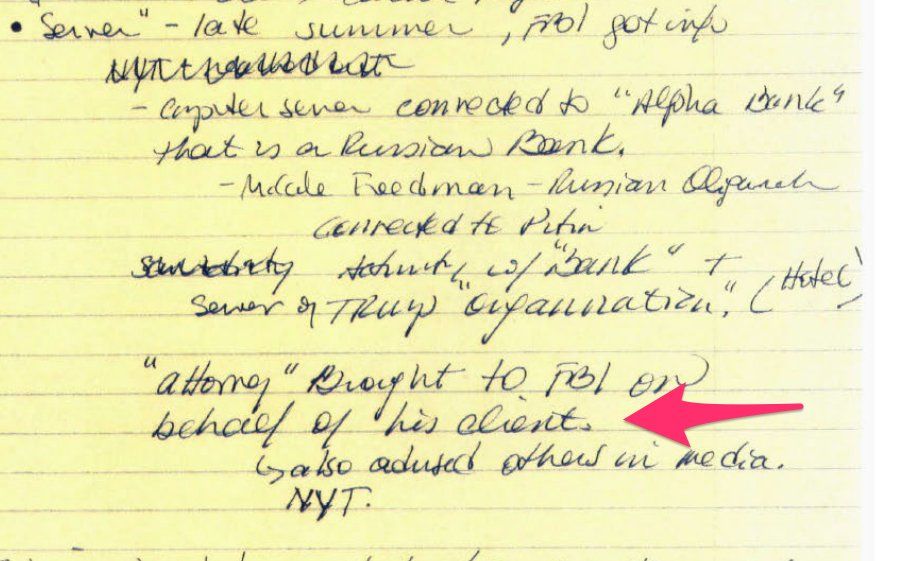 • Server" - late summer, FBI got info
- computer server connected to "Alpha Bank"
that is a Russian Bank.
- Freedman - Russian Oligarch
connected to Putin
activity w/ "Bank" +
Server of TRump "organization". (Hotel)
"attorney" Brought to FBI on
behalf of his client.
↳ also advised others in media.
NYT.